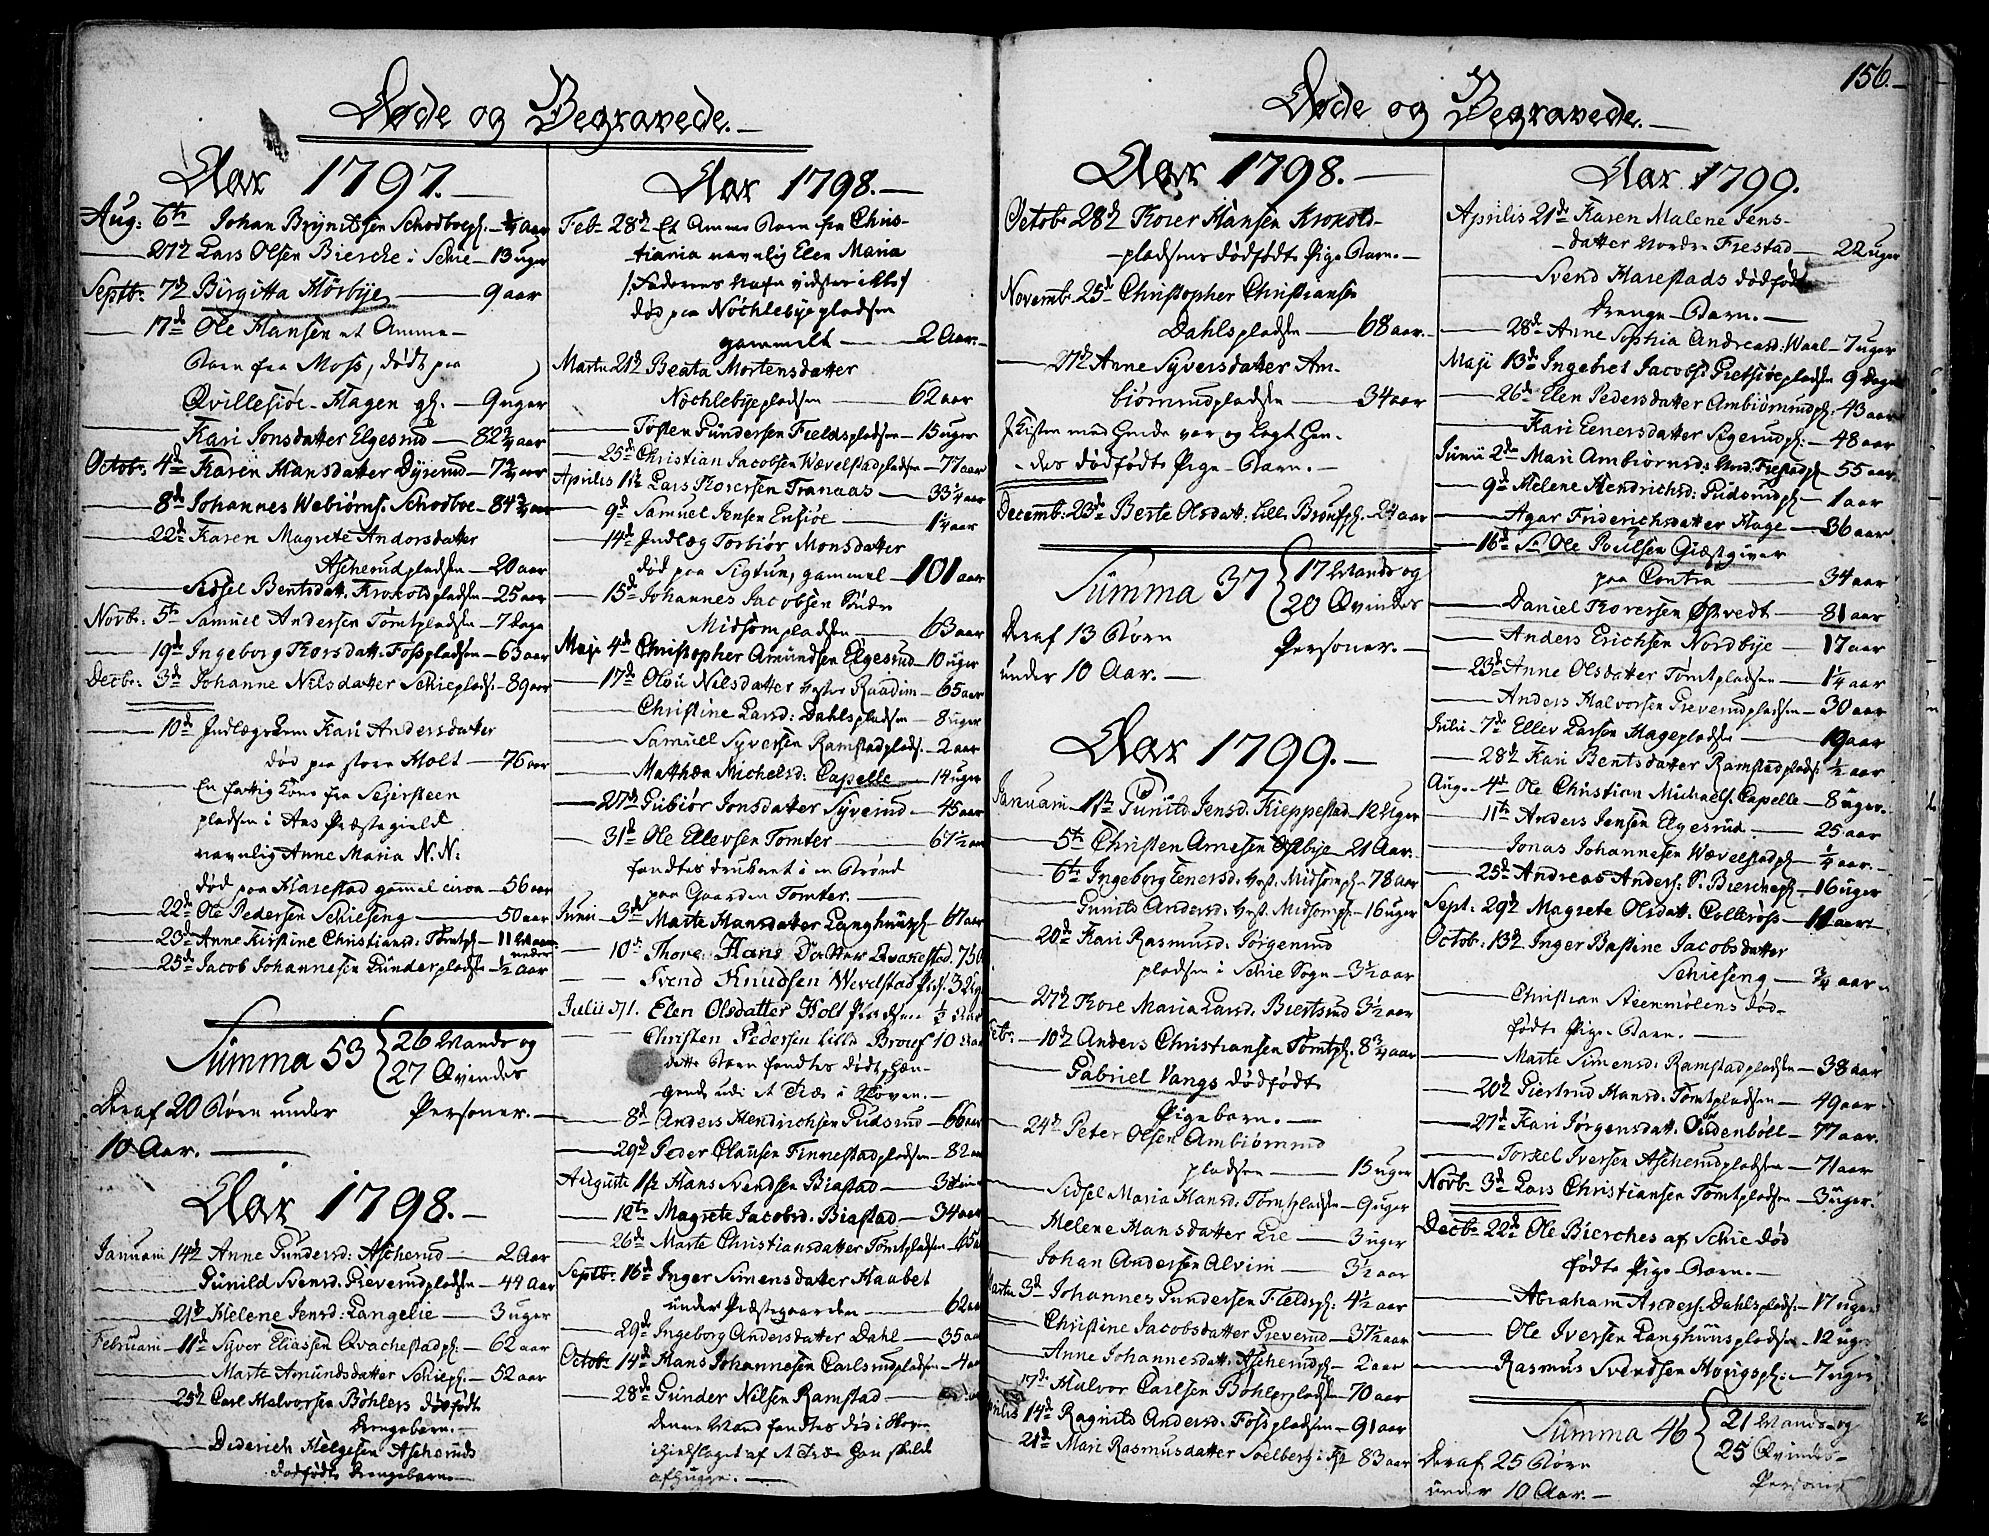 Døde og Begravede.
Aar 1797.
Aug: 6te Johan Brynildsen Schodboepl. ¼ aar
27de Lars Olsen Biercke i Schie 13 uger
Septb: 7de Birgitta Hörbye 9 aar
17de Ole Hansen et Amme-
Barn fra Moss, død paa
Qvillesiöe-Hagen gl. 9 uger
Kari Jonsdatter Elgesrud 82¾ aar
Octob: 4de Karen Hansdatter Dyrerud 7¾ aar
8de Johannes Webiörns. Schodboe 84¾ aar
22de Karen Magrete Andorsdatter
Ascherudpladsen 20 aar
Sidsel Bentsdatt. Krokoldpladsen 25 aar
Novb: 5te Samuel Andersen Tomtpladsen 7 dage
19de Ingeborg Thorsdatt. Fosspladsen 63 aar
Decbr: 3de Johanne Nilsdatter Schiepladsen 89 aar
10de Indlægs Kone Kari Andersdatter
død paa store Holt 76 aar
En fattig Kone fra Sejersteen
pladsen i Aas Præstegield
navnlig Anne Maria N.N:
død paa Harestad gamel circa 56 aar
22de Ole Pedersen Schieseng 50 aar
23de Anne Kirstine Christiansd: Tomtpl. 11 Maaneder
25de Jacob Johannesen Gunderpladsen ½ aar
Summa 53 { 26 Mands og
27 Qvindes
Deraf 20 Börn under Personer.
10 Aar.
Aar 1798.
Januarii 14de Anne Gundersd: Ascherud 2 Aar
Gunild Svensd: Greverudpladsen 44 Aar
21de Helene Jensd: Langelie 3 uger
Februarii 11de Syver Eliassen Qvachestadpl: 62 aar
Marte Amundsdatter Schiepl. 52 aar
25de Carl Halvorsen Böhlers dödfödte
Drengebarn.
Diderich Helgesen Ascheruds
dødfödte Drengebarn
Aar 1798.
Feb: 28de Et Amme Barn fra Chris-
tiania navnlig Elen Maria
/: Faderens Nafn vidstes ikke :/
död paa Nöchlebyepladsen
gammelt 2 Aar.
Martii 21de Beata Mortensdatter
Nöchlebyepladsen 62 aar
Tosten Gundersen Fieldspladsen 15 uger
25de Christian Jacobsen Wævelstadpladsen 77 aar
Aprilis 1ste Lars Thoresen Tranaas 33¼ aar
9de Samuel Jensen Ensiöe 1¼ aar
14de Indlæg Torbiör Monsdatter
død paa Sigtun, gammel 101 aar
15de Johannes Jacobsen Söndre
Midsompladsen 63 aar
Maji 4de Christopher Amundsen Elgesrud 10 uger
17de Olou Nilsdatter Vester Raadim 65 aar
Christine Larsd: Dahlspladsen 8 uger
Samuel Syversen Ramstadplads. 2 aar
Matthæa Michelsd: Capelle 14 uger
27de Gubiör Jonsdatter Syverud 45 aar
31de Ole Ellevsen Tomter 67½ aar
fandtes druknet i en Brönd
paa Gaarden Tomter.
Junii 3de Marte Hansdatter Langhuuspl. 67 aar
10de Thore Hans Datter Qvakestad 75
Svend Knudsen Wevelstad Plds. 3 Uger
Julii d 1. Elen Olsdatter Holt Pladsen ½ Aar
Christen Pedersen lille Brouf 10 Aar
dette Barn fandtes dødt hæn-
gende udi et Træ i Skoven.
8de Anders Hendrichsen Gudsrud 66 aar
29de Peder Clausen Finnestadpladsen 82 aar
Auguste 1ste Hans Svendsen Biastad
12te Magrete Jacobsd. Biastad 34 aar
26de Marte Christiansdatter Tomtpladsen 65
Septb: 16de Inger Simensdatter Haabet
under Præstegaarden 62 aar
29de Ingeborg Andersdatter Dahl 35 aar
Octob: 14de Hans Johannesen Carlsrudpladsen 4 aar
28de Gunder Nilsen Ramstad
Denne Mand fandtes død i Skoven
ihielslaget af et Træ han skulde
afhugge.
156.
Døde og Begravede.
Aar 1798.
Octob: 28de Thorer Hansen Krokold-
pladsens dødfødte Pige Barn.
Novemb: 25de Christopher Christiansen
Dahlspladsen 68 aar.
27de Anne Syversdatter Am-
biörnrudpladsen 34 aar
I Kisten med hende var og lagt hen-
des dødfødte Pige-Barn.
Decemb: 23de Berte Olsdatt: lille Broufpl. 24 aar
Summa 37 { 17 Mands og
20 Qvindes
Deraf 13 Börn Personer.
under 10 Aar.
Aar 1799.
Januarii 1ste Gunild Jensd. Kieppestad 12 Uger
5te Christen Arnesen Ostbye 21 Aar.
6te Ingeborg Eenersd. Vest. Midsompl. 78 aar
Gunild Andersd: Vest. Midsompl. 16 uger
20de Kari Rasmusd: Jörgenrud
pladsen i Schie Sogn 3½ aar
27de Thore Maria Larsd: Biertsrud 3½ aar
Febr: 10de Anders Christiansen Tomtpl: 8¾ aar
Gabriel Vangs dødfödte
Pigebarn.
24de Peter Olsen Ambiörnrud
pladsen 15 uger
Sidsel Maria Hansd: Tomtpladsen 9 uger
Helene Hansdatter Lie 3 uger
Johan Andersen Alvim 3½ aar
Martii 3de Johannes Gundersen Fieldspl: 4½ aar
Christine Jacobsdatter Greverud 37½ aar
Anne Johannesdatt. Ascherudpl. 2 aar
17de Halvor Carlsen Böhlerpladsen 70 aar
Aprilis 14de Ragnild Andersd: Fosspladsen 91 aar
21de Mari Rasmusdatter Soelberg i Kr. 83 aar
Aar 1799.
Aprilis 21de Karen Malene Jens-
datter Nordre Frestad 22 uger
Svend Harestads dødfødte
Drenge-Barn.
28de Anne Sophia Andreasd: Waal 7 uger
Maji 13de Ingebret Jacobs: Gretsiöepladsen 9 dage
26de Elen Pedersdatter Ambiörnrudpl. 43 aar
Kari Eenersdatter Sigerudpl: 48 aar
Junii 2de Mari Ambiörnsd: Nord. Frestadpl. 55 aar
9de Helene Hendrichsd: Gudsrudpl. 1 aar
Agar Friderichsdatter Hage 36 aar
16de Sr. Ole Poulsen Giæstgiver
paa Contra 34 aar
Daniel Thoresen Ostvedt 81 aar
Anders Erichsen Nordbye 17 aar
23de Anne Olsdatter Tomtpladsen 1¼ aar
Anders Halvorsen Greverudpladsen 30 aar
Julii 7de Ellev Larsen Hagepladsen 19 aar
28de Kari Bentsdatter Ramstadplads: ½ aar
Aug. 4de Ole Christian Michaels. Capelle 8 uger.
11te Anders Jensen Elgesrud 25 aar
Jonas Johannesen Wævelstadpl. ¼ aar.
25de Andreas Anders: S. Bierckepl. 16 uger
Sept: 29de Magrete Olsdatt. Colleröss 11 aar
Octob: 13de Inger Bastine Jacobsdatter
Schieseng ¾ aar
Christian Steenmölens død-
fødte Pige-Barn.
Marte Simensd: Ramstadpladsen 38 aar
20de Giertrud Hansd: Tomtpladsen 49 aar
27de Kari Jörgensdatt. Oudenböll 77 aar.
Torkel Iversen Ascherudpladsen 71 aar
Novb: 3de Lars Christiansen Tomtpladsen 3 uger.
Decb: 22de Ole Bierches af Schie død
fødte Pige-Barn.
Abraham Anders: Dahlsplads: 17 uger
Ole Iversen Langhuuspladsen 12 uger
Rasmus Svendsen Haugspl: 7 uger
Summa 46 { 21 Mands-og
25 Qvindes-
Deraf 25 Börn Personer
under 10 Aar.